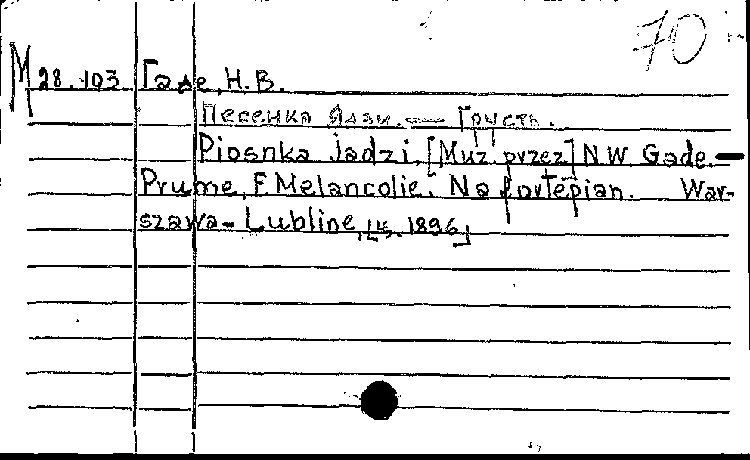 70
М 28.103 Гаде, Н.В.
Песенка Ядзи. — Грусть.
Piosnka Jadzi, [Muz przez] N W Gade. —
Prume, F. Melancolie. Na fortepian. War-
szawa - Lubline, 1896]